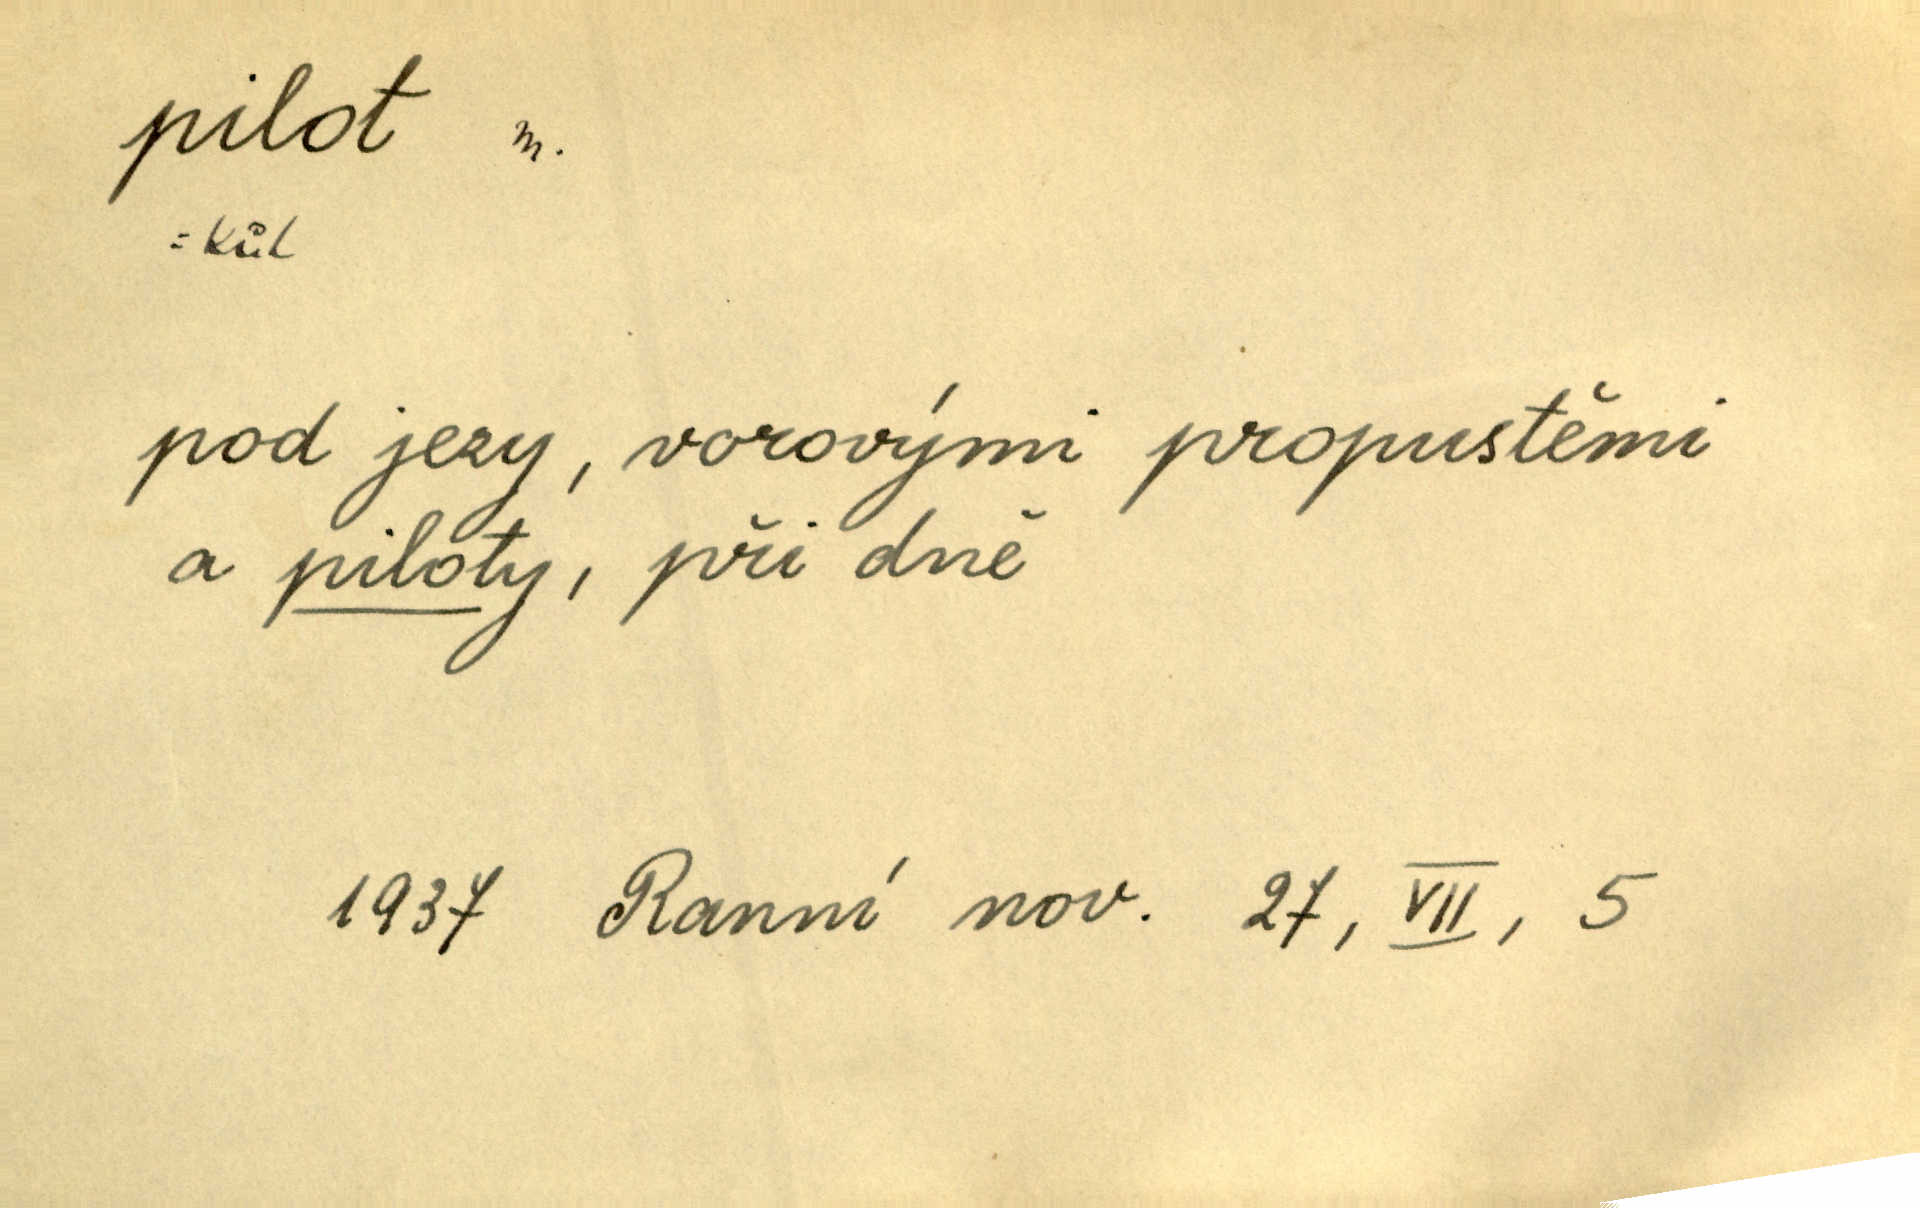 pilot m.
= kůl
pod jezy, vorovými propustěmi
a piloty, při dně
1937 Ranní nov. 27, VII, 5